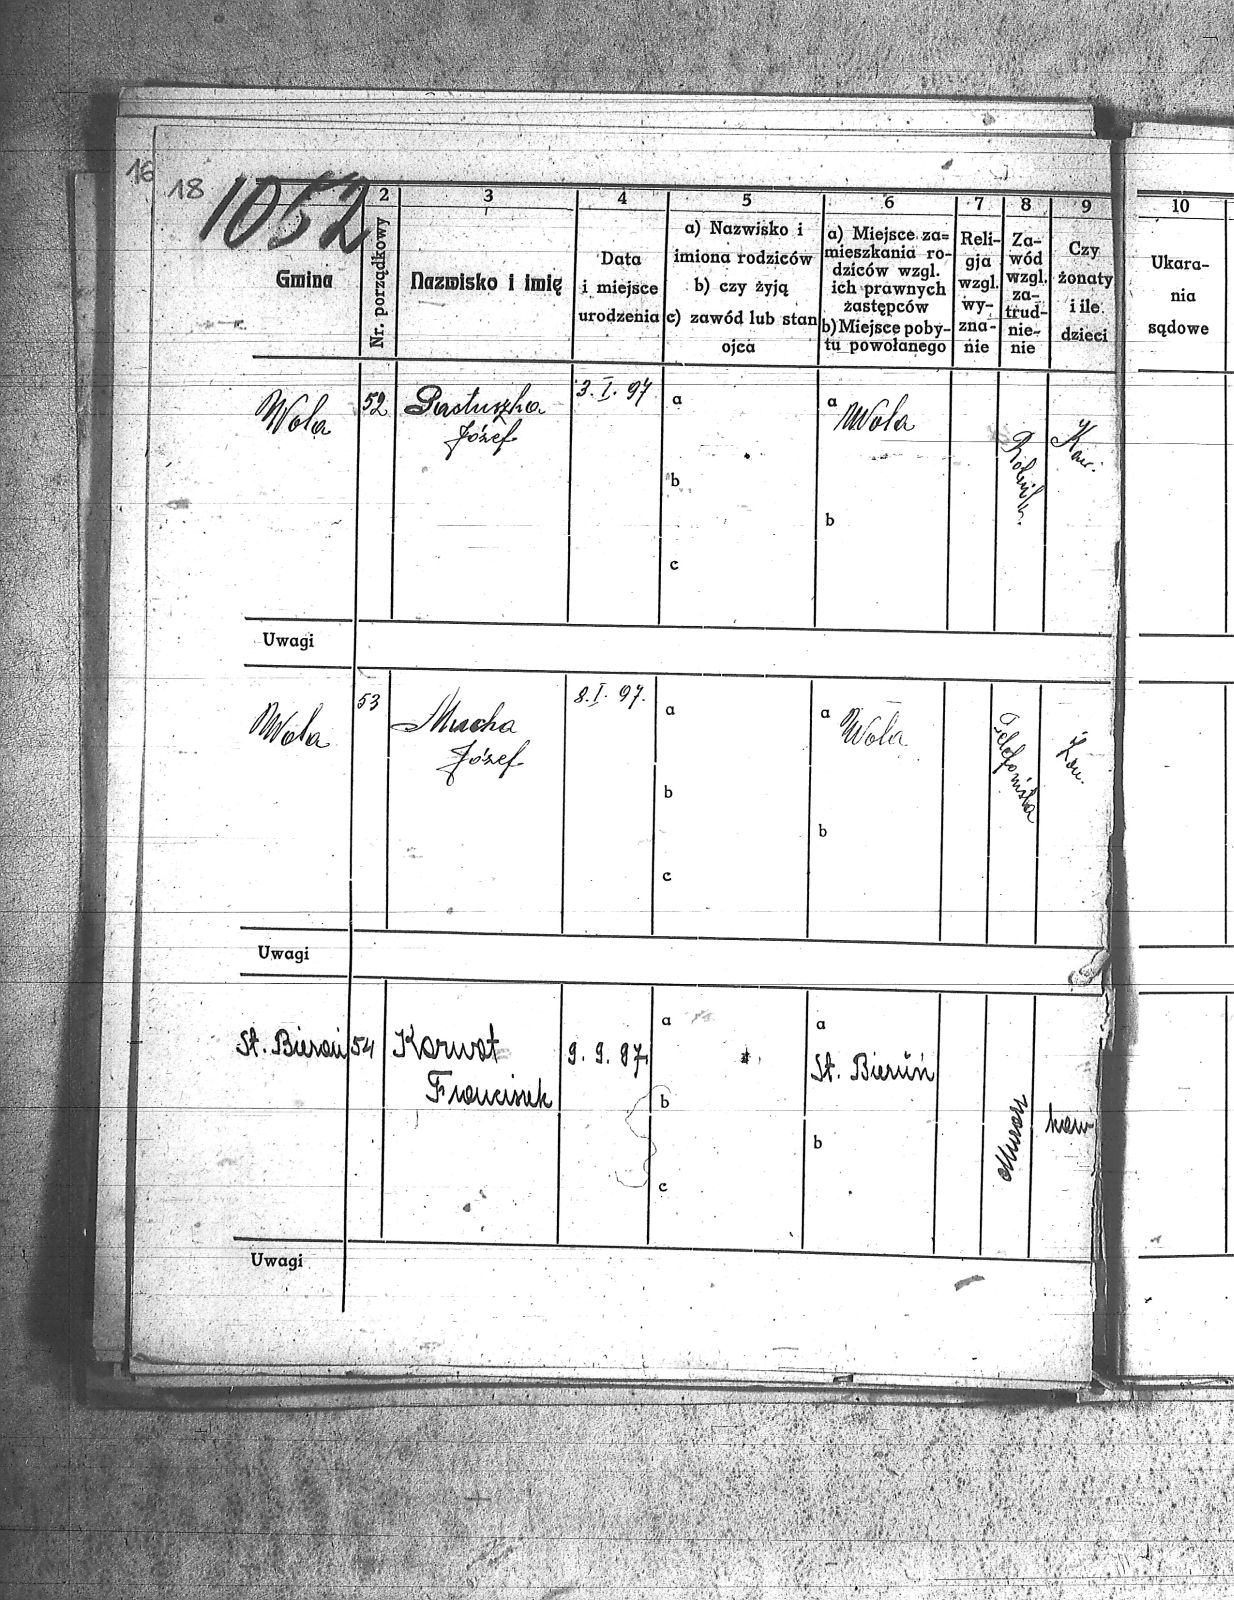 16
18
1052
2
3
4
5
6
7
8
9
10
Gmina
Nr. porządkowy
Nazwisko i imię
Data
i miejsce
urodzenia
a) Nazwisko i
imiona rodziców
b) czy żyją
c) zawód lub stan
ojca
a) Miejsce za=
mieszkania ro-
dziców wzgl.
ich prawnych
zastępców
b) Miejsce poby-
tu powołanego
Reli-
gja
wzgl.
wy-
zna-
nie
Za-
wód
wzgl.
za-
trud-
nie-
nie
Czy
żonaty
i ile
dzieci
Ukara-
nia
sądowe
Wola
52
Pastuszka
Józef
3. I. 97
a
b
c
a
Wola
b
Kaw.
Uwagi
Wola
53
Mucha
Józef
8. I. 97.
a
b
c
a
Wola
b
Telefonista
Żon.
Uwagi
St. Bieruń
54
Karwot
Franciszek
9. 9. 97
a
b
c
a
St. Bieruń
b
Murarz
kaw
Uwagi